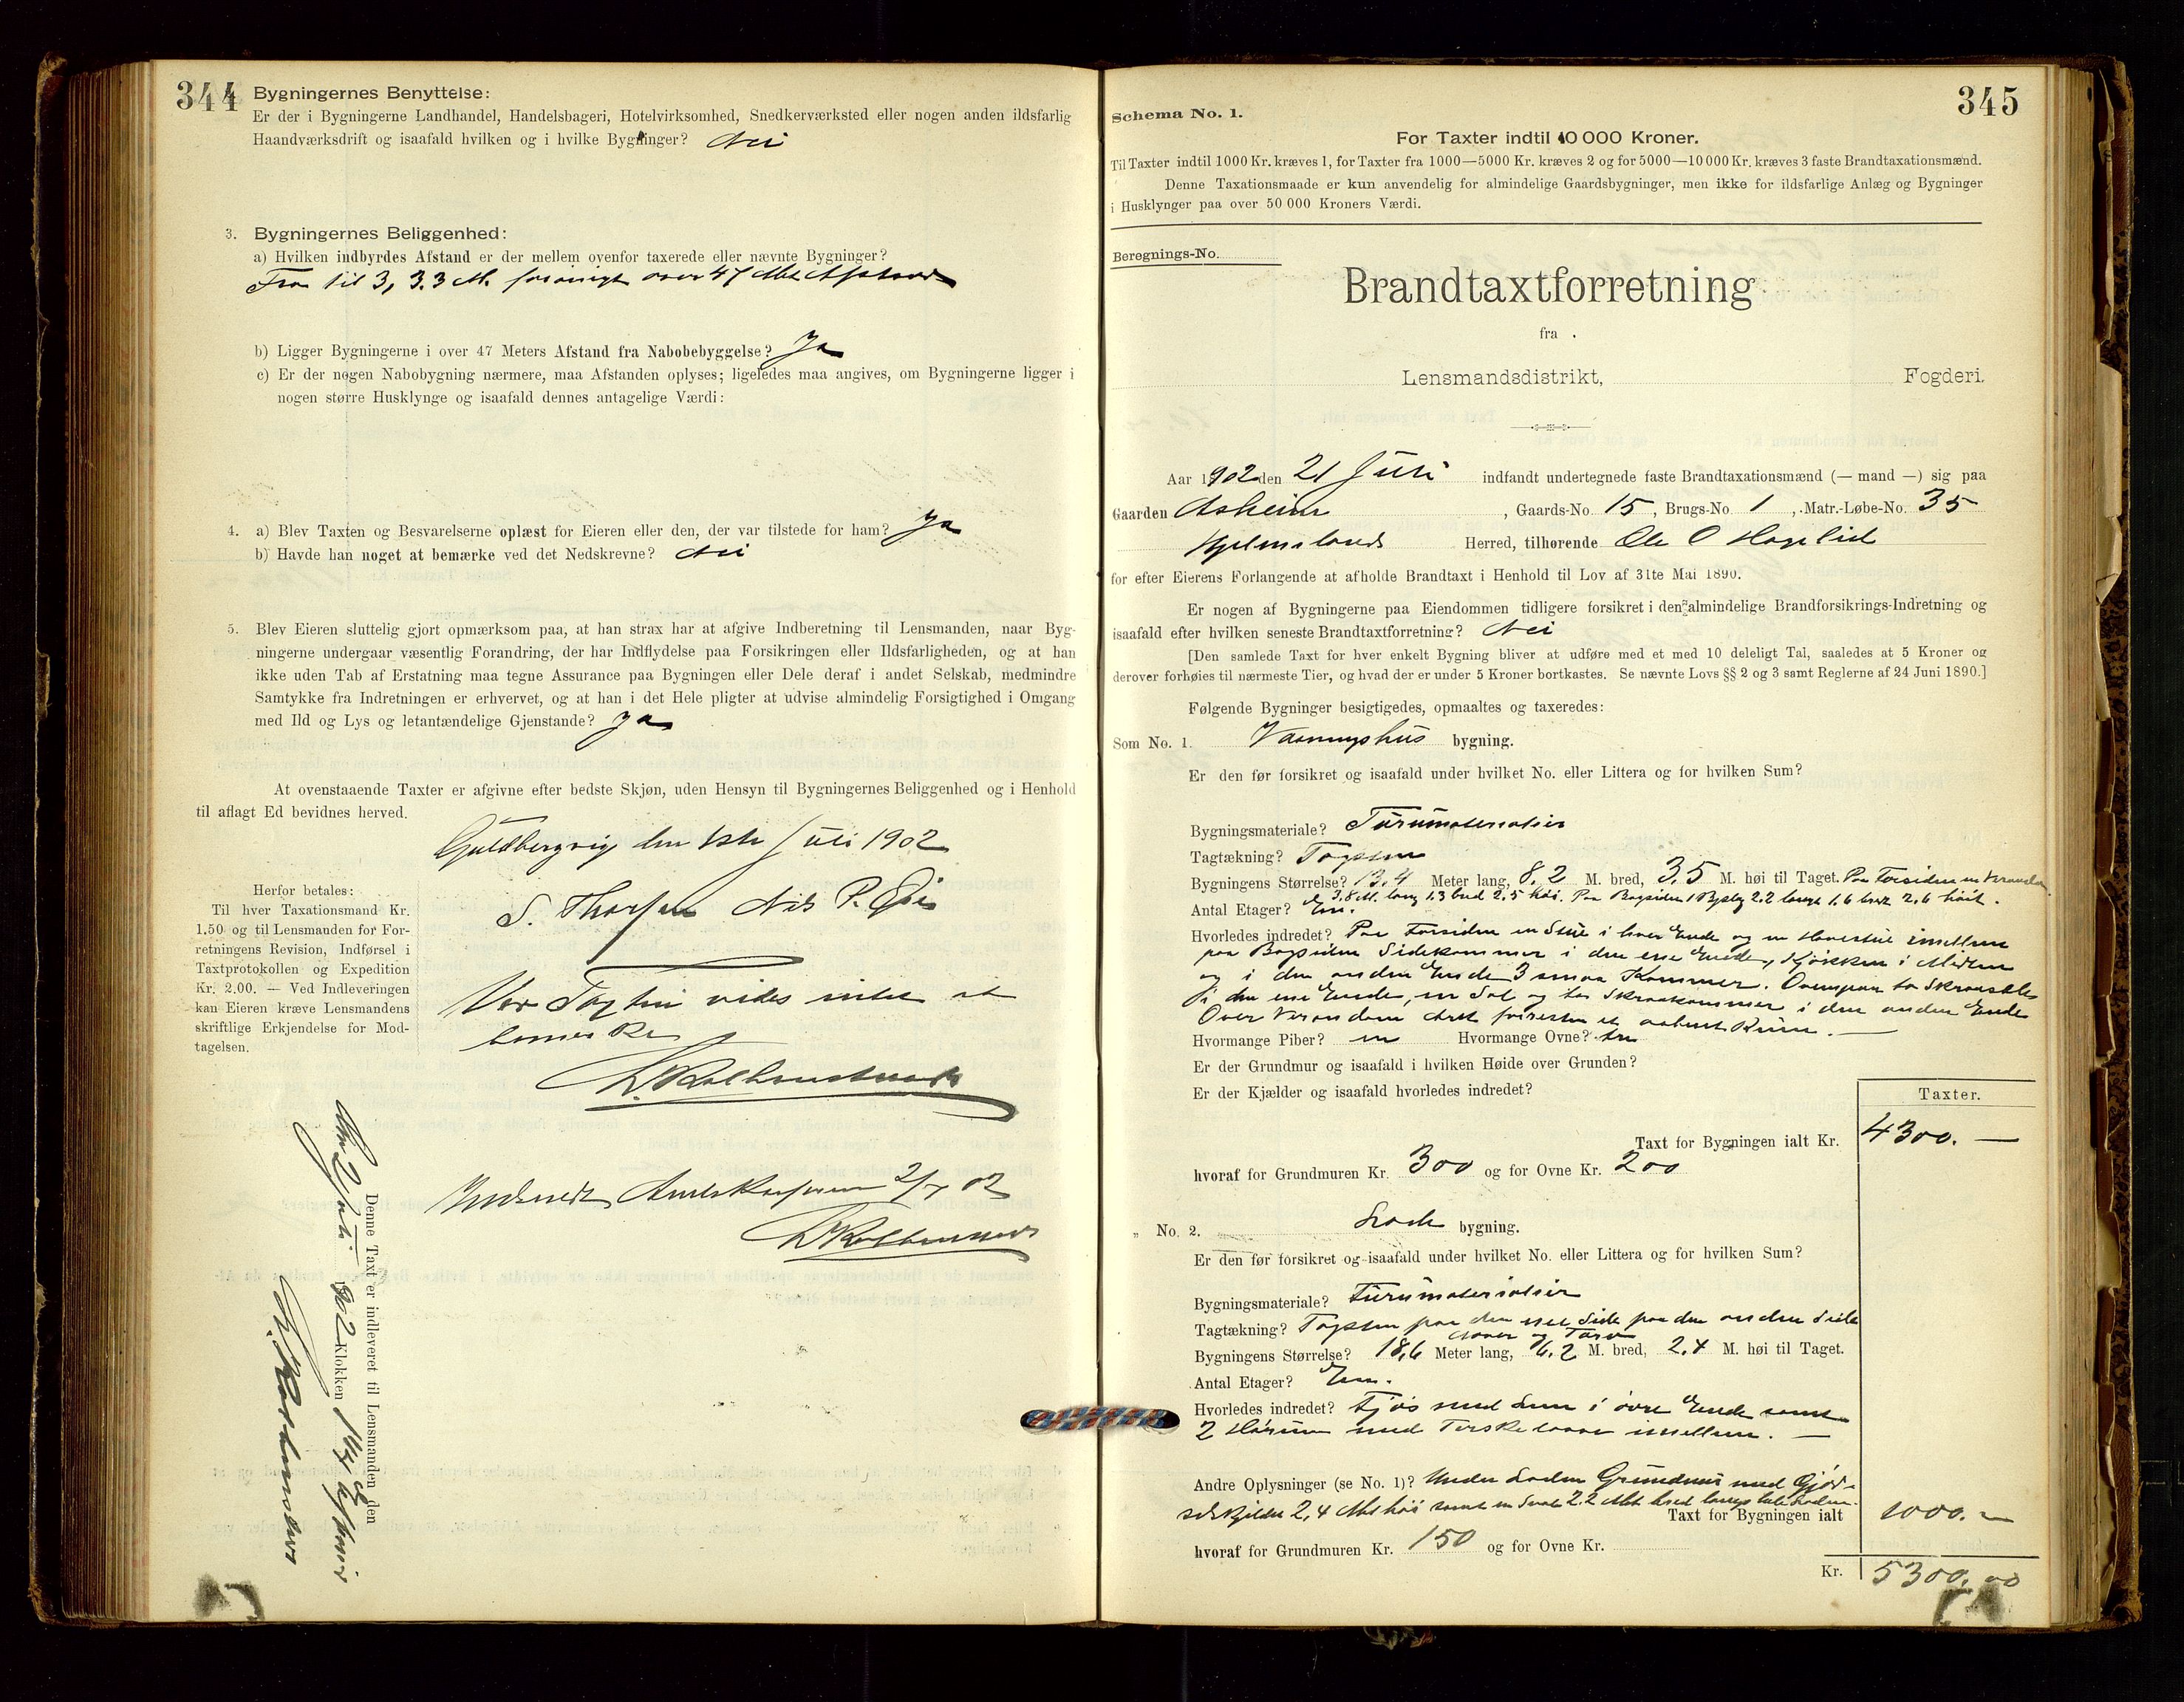 344
Bygningernes Benyttelse:
Er der i Bygningerne Landhandel, Handelsbageri, Hotelvirksomhed, Snedkerværksted eller nogen anden ildsfarlig
Haandværksdrift og isaafald hvilken og i hvilke Bygninger? Nei
3. Bygningernes Beliggenhed:
a) Hvilken indbyrdes Afstand er der mellem ovenfor taxerede eller nævnte Bygninger?
Fra til 3, 3.3 M. forøvrigt over 47 Mtr Afstand
b) Ligger Bygningerne i over 47 Meters Afstand fra Nabobebyggelse? Ja
c) Er der nogen Nabobygning nærmere, maa Afstanden oplyses; ligeledes maa angives, om Bygningerne ligger i
nogen større Husklynge og isaafald dennes antagelige Værdi:
4. a) Blev Taxten og Besvarelserne oplæst for Eieren eller den, der var tilstede for ham? Ja
b) Havde han noget at bemærke ved det Nedskrevne? Nei
5. Blev Eieren sluttelig gjort opmærksom paa, at han strax har at afgive Indberetning til Lensmanden, naar Byg-
ningerne undergaar væsentlig Forandring, der har Indflydelse paa Forsikringen eller Ildsfarligheden, og at han
ikke uden Tab af Erstatning maa tegne Assurance paa Bygningen eller Dele deraf i andet Selskab, medmindre
Samtykke fra Indretningen er erhvervet, og at han i det Hele pligter at udvise almindelig Forsigtighed i Omgang
med Ild og Lys og letantændelige Gjenstande? Ja
At ovenstaaende Taxter er afgivne efter bedste Skjøn, uden Hensyn til Bygningernes Beliggenhed og i Henhold
til aflagt Ed bevidnes herved.
Guldbergvig den 1ste Juli 1902
S. Thorsen Nils P.
Herfor betales:
Til hver Taxationsmand Kr.
1.50 og til Lensmanden for For-
retningens Revision, Indførsel i
Taxtprotokollen og Expedition
Kr. 2.00. — Ved Indleveringen
kan Eieren kræve Lensmandens
skriftlige Erkjendelse for Mod-
tagelsen.
Ved Taxten vides intet at
bemerke
Indsendt 2/7 02
Denne Taxt er indleveret til Lensmanden den
2 Juli 1902 Klokken
345
Schema No. 1.
For Taxter indtil 10 000 Kroner.
Til Taxter indtil 1000 Kr. kræves 1, for Taxter fra 1000—5000 Kr. kræves 2 og for 5000—10000 Kr. kræves 3 faste Brandtaxationsmænd.
Denne Taxationsmaade er kun anvendelig for almindelige Gaardsbygninger, men ikke for ildsfarlige Anlæg og Bygninger
i Husklynger paa over 50 000 Kroners Værdi.
Beregnings-No.
Brandtaxtforretning
fra
Lensmandsdistrikt, Fogderi.
Aar 1902 den 21 Juni indfandt undertegnede faste Brandtaxationsmænd (— mand —) sig paa
Gaarden Asheim, Gaards-No. 15, Brugs-No 1, Matr.-Løbe-No. 35
Hjelmelands Herred, tilhørende Ole O
for efter Eierens Forlangende at afholde Brandtaxt i Henhold til Lov af 31te Mai 1890.
Er nogen af Bygningerne paa Eiendommen tidligere forsikret i den almindelige Brandforsikrings-Indretning og
isaafald efter hvilken seneste Brandtaxtforretning? Nei
[Den samlede Taxt for hver enkelt Bygning bliver at udføre med et med 10 deleligt Tal, saaledes at 5 Kroner og
derover forhøies til nærmeste Tier, og hvad der er under 5 Kroner bortkastes. Se nævnte Lovs §§ 2 og 3 samt Reglerne af 24 Juni 1890.]
Følgende Bygninger besigtigedes, opmaaltes og taxeredes:
Som No. 1. Vaaningshus bygning.
Er den før forsikret og isaafald under hvilket No. eller Littera og for hvilken Sum?
Bygningsmateriale? Furumaterialier
Tagtækning? Tagsten
Bygningens Størrelse? 13,4 Meter lang, 8,2 M. bred, 3,5 M. høi til Taget. Paa Forsiden en Veranda
3,8 M. lang 1.3 bred 2,5 høi. Paa Bagsiden 1 Bislag 2.2 langt 1,6 bredt 2,6 høit.
Antal Etager? En.
Hvorledes indredet? Paa Forsiden en Stue i hver Ende og en imellem
paa Bagsiden Sidekammer i den ene Ende, Kjøkken i Midten
og i den anden Ende 3 smaa Kammer. Ovenpaa to
i den ene Ende, en Sal og to Skraakammer i den anden Ende
Over Verandaen et aabent Rum. —
Hvormange Piber? en Hvormange Ovne?
Er der Grundmur og isaafald i hvilken Høide over Grunden?
Er der Kjælder og isaafald hvorledes indredet?
Taxter.
Taxt for Bygningen ialt Kr. 4300. —
hvoraf for Grundmuren Kr. 300 og for Ovne Kr. 200
" No. 2. Lade bygning.
Er den før forsikret og isaafald under hvilket No. eller Littera og for hvilken Sum?
Bygningsmateriale? Furumaterialier
Tagtækning? Tagsten paa den ene Side paa den anden Side
Næver og Torv
Bygningens Størrelse? 18,6 Meter lang, 6,2 M. bred, 2,4 M. høi til Taget.
Antal Etager? En.
Hvorledes indredet? Fjøs med Lem i øvre Ende samt
2 Hørum med Terskelaave imellem. —
Andre Oplysninger (se No. 1)? Under Laden Grundmur med Gjød-
selskjelder 2,4 Mtr høi samt en Sval 2.2 Mtr bred langs hele Laden.
Taxt for Bygningen ialt 1000. —
hvoraf for Grundmuren Kr. 150 og for Ovne Kr.
Kr. 5300,00